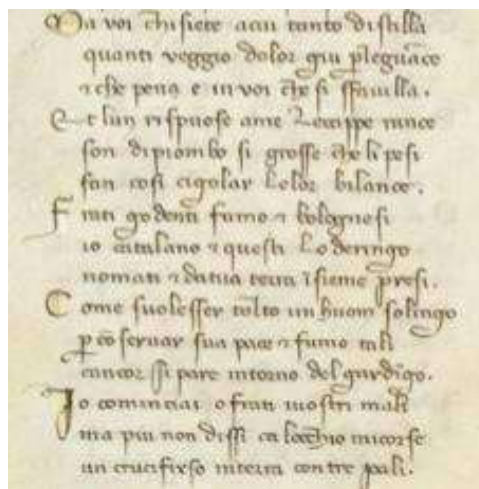 Ma voi chi siete a cui tanto distilla
quanti veggio dolor giu p leguāce
τ che pena e in voi che si sfauilla.
Et lun rispuose ame Le cappe rance
son di piombo si grosse che li pesi
fan cosi cigolar le lor bilance.
Frati godenti fumo τ bolognesi
io catalano τ questi Loderingo
nomati τ da tua terra īsieme presi.
Come suolesser tolto un huom solingo
p cōseruar sua pace τ fumo tali
cancor si pare intorno del gardīgo.
Jo cominciai o frati iuostri mali
ma piu non dissi ca locchio micorse
un crucifixso interra con tre pali.